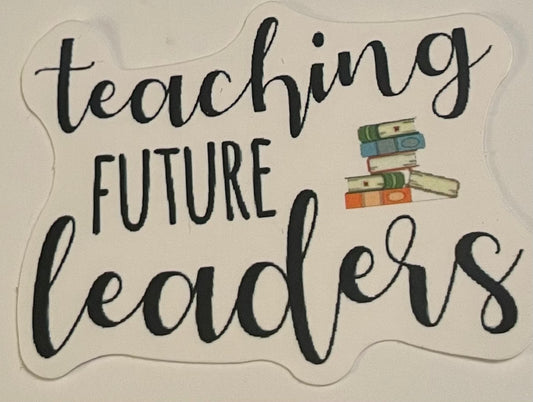 teaching
FUTURE
leaders